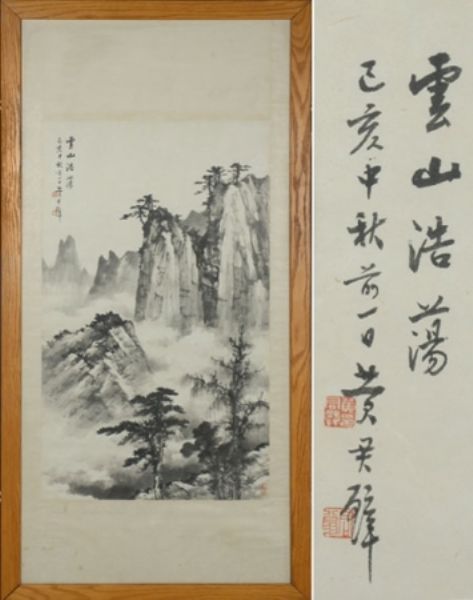 雲山浩蕩
己亥中秋前一日黃君璧